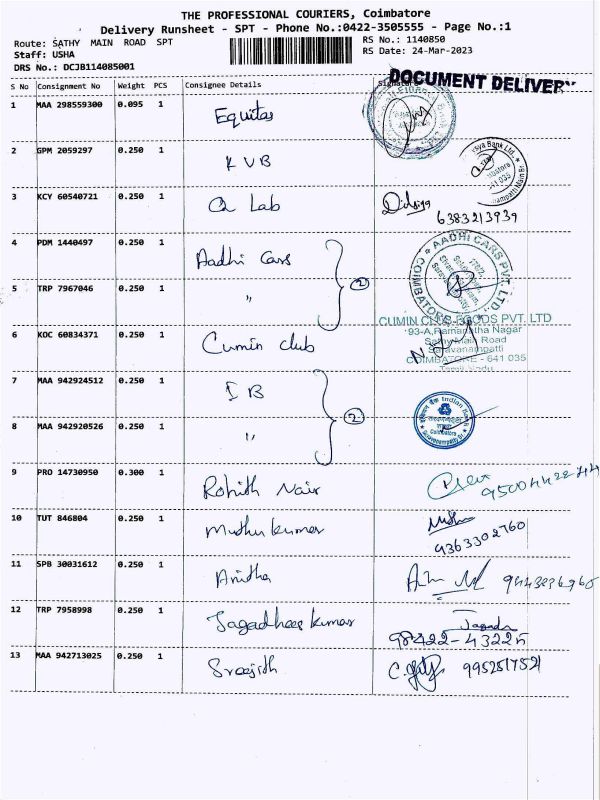 THE PROFESSIONAL COURIERS, Coimbatore
Delivery Runsheet - SPT - Phone No.:0422-3505555 - Page No.:1
Route: SATHY MAIN ROAD SPT
RS No.: 1140850
Staff: USHA
RS Date: 24-Mar-2023
DRS No.: DCJB114085001
DOCUMENT DELIVERY
S No Consignment No Weight PCS Consignee Details Signature
1 MAA 298559300 0.095 1 Equitas
2 GPM 2059297 0.250 1 KVB
3 KCY 60540721 0.250 1 Q Lab 6383213939
4 PDM 1440497 0.250 1 Aadhi Cars
AADHI CARS PVT. LTD. COIMBATORE
5 TRP 7967046 0.250 1 " 2
CUMIN CLUB FOODS PVT. LTD
93-A, Ramanatha Nagar
Sathy Main Road
Saravanampatti
COIMBATORE - 641 035
Tamil Nadu
6 KOC 60834371 0.250 1 Cumin club
7 MAA 942924512 0.250 1 IB
8 MAA 942920526 0.250 1 " 2
Indian Bank
Coimbatore
9 PRO 14730950 0.300 1 Rohith Nair
10 TUT 846804 0.250 1 Muthu kumar 9363302760
11 SPB 30031612 0.250 1 Anitha
12 TRP 7958998 0.250 1 Jagadhees kumar 98422-43225
13 MAA 942713025 0.250 1 Sreejith 9952517521